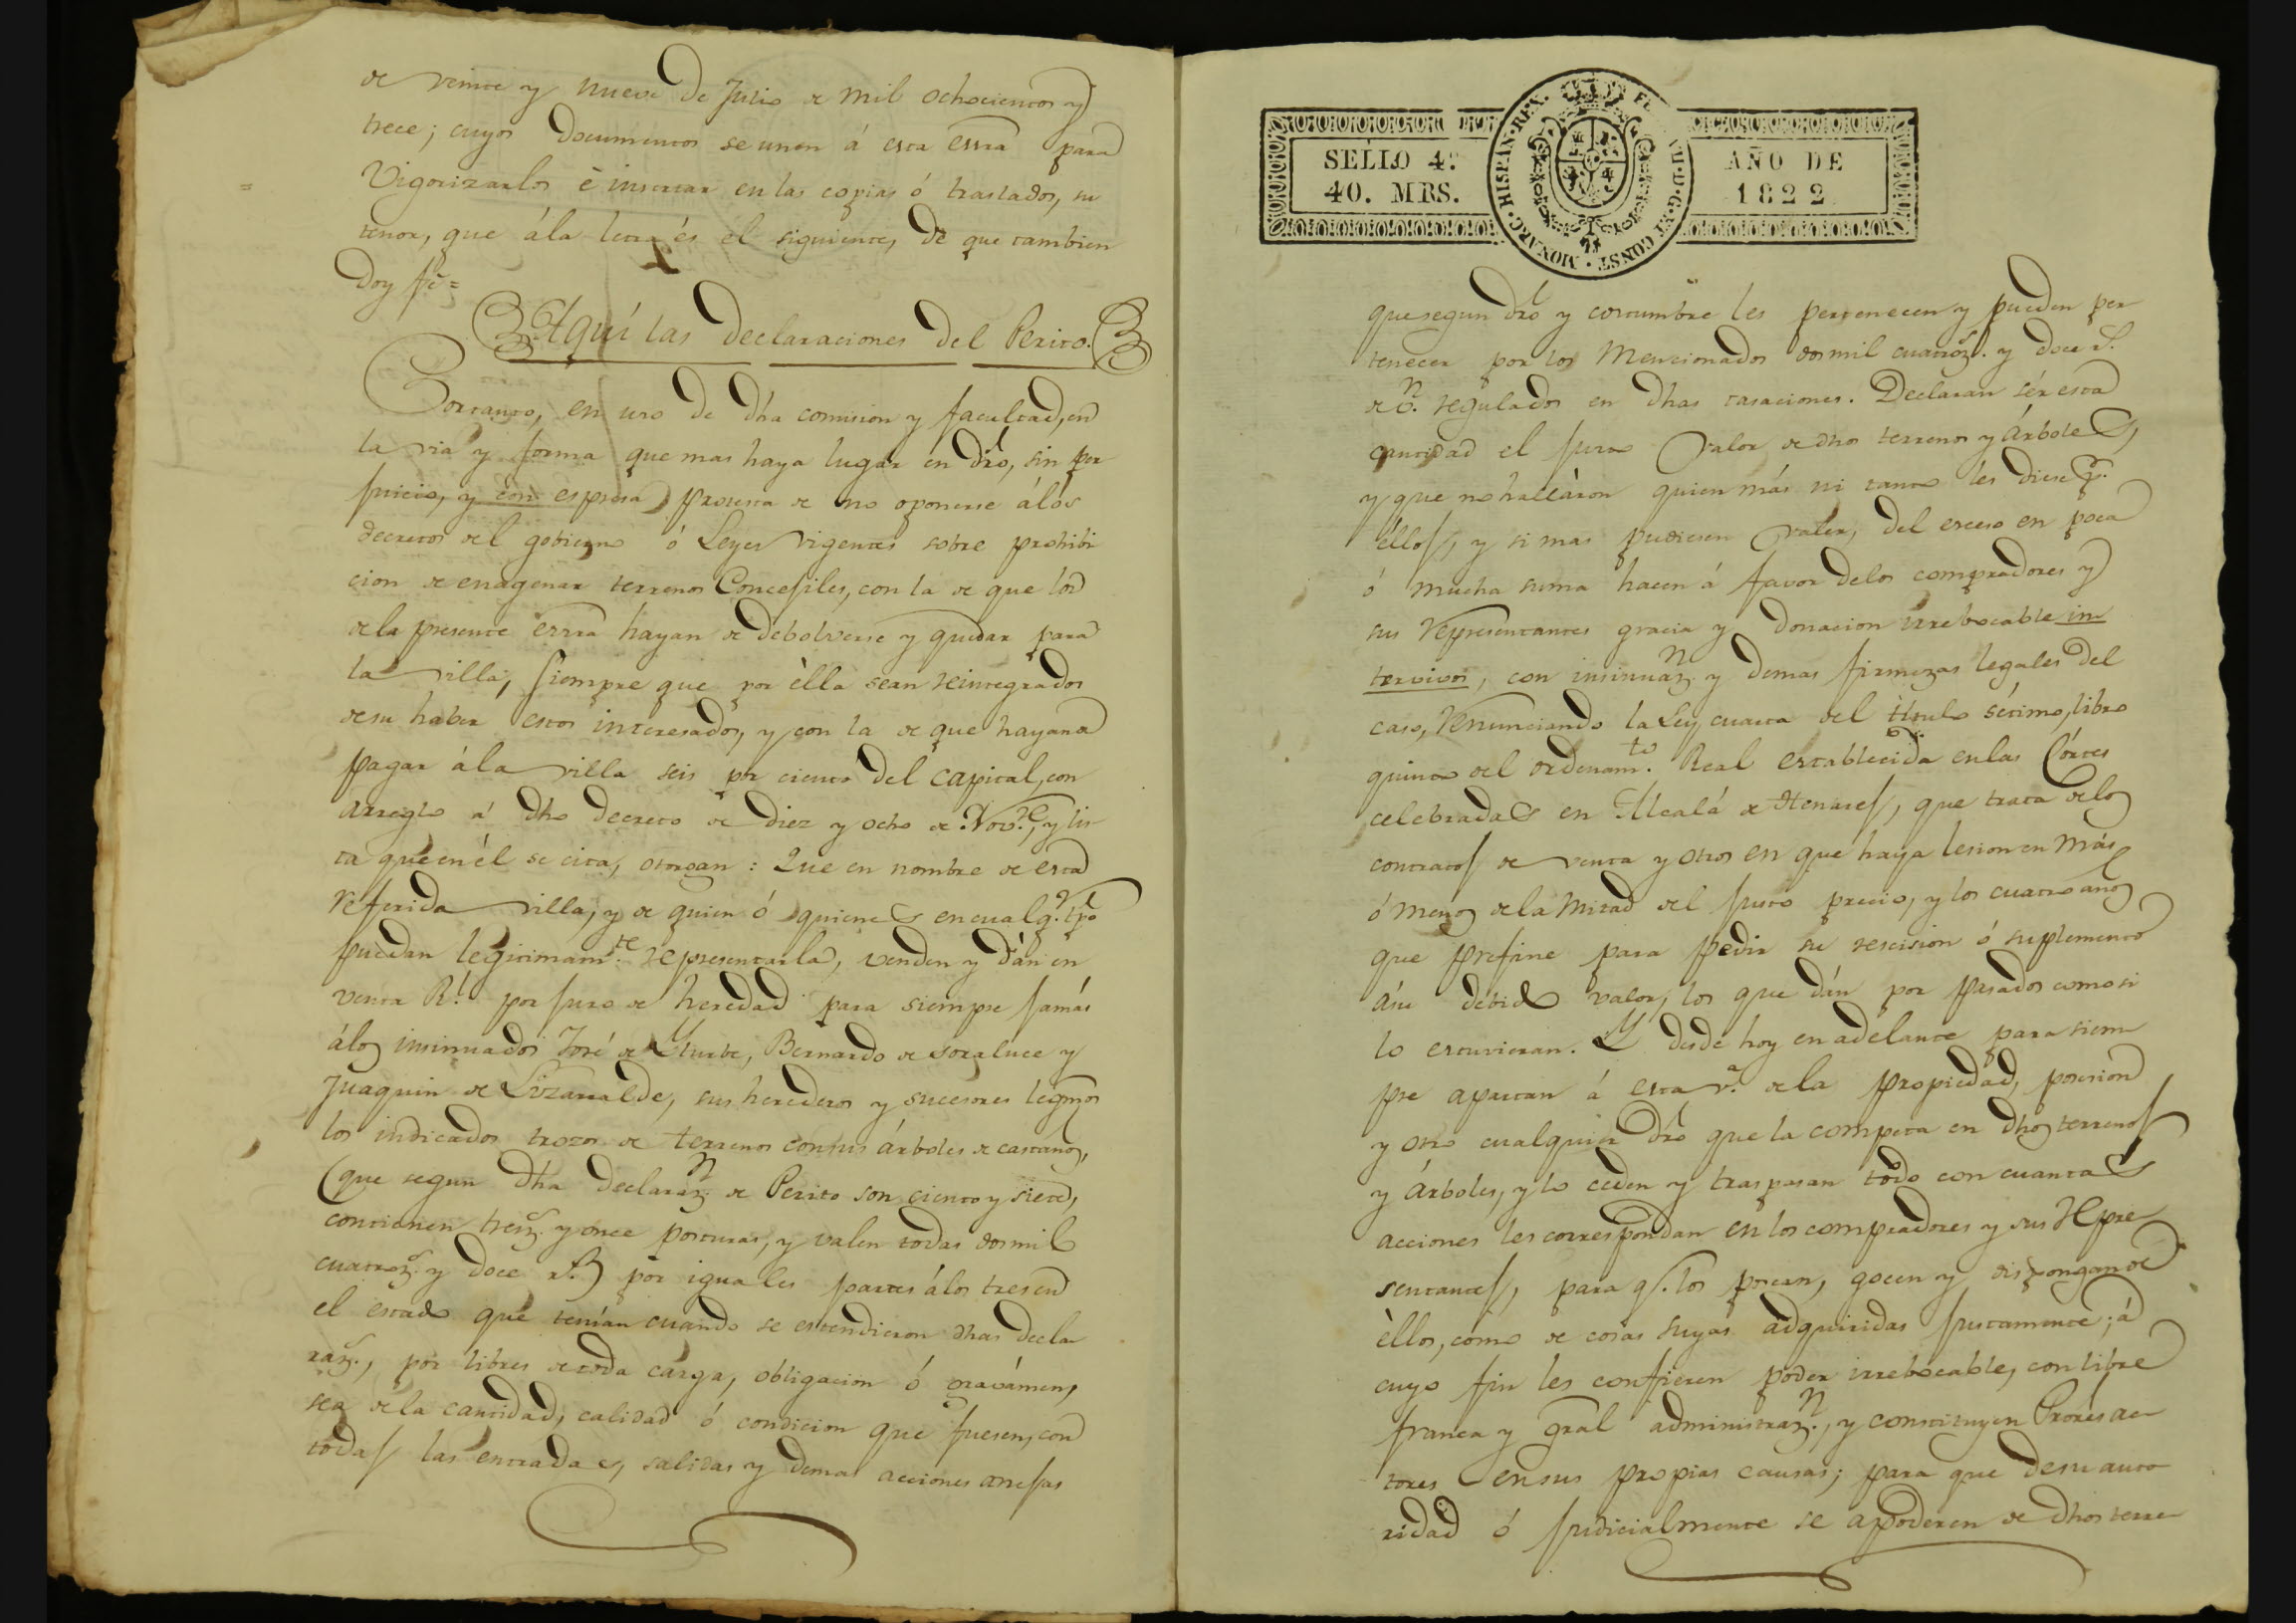 de veinte y nueve de Julio de mil ochocientos y
trece; cuyos documentos se unen á esta essra para
Vigorizarlos è insertar en las copias ó traslados, su
tenor, que á la letra és el siguiente, de que tambien
doy fé =
Aquí las declaraciones del Perito.
Portanto, en uso de dha comision y facultad, en
la via y forma que mas haya lugar en dro, sin per
juicio, y con espresa protesta de no oponerse á los
decretos del gobierno ó Leyes vigentes sobre prohibi
cion de enagenar terrenos Concejiles, con la de que los
de la presente essra hayan de debolverse y quedar para
la villa, siempre que por èlla sean reintegrados
de su haber estos interesados, y con la de que hayan de
pagar á la villa seis por ciento del capital, con
arreglo á dho decreto de diez y ocho de Nov.e, y lis
ta que en él se cita, otorgan: Que en nombre de esta
referida villa, y de quien ó quienes en cualq.r tpo
puedan legitimam.te representarla, venden y dán en
venta R.l por juro de heredad para siempre jamás
á los insinuados José de Yturbe, Bernardo de Soraluce y
Juaquin de Lizarralde, sus herederos y sucesores legmos
los indicados trozos de terrenos con sus árboles de castaños,
(que segun dha declaraz.n de Perito son ciento y siete,
contienen trez.s y once posturas, y valen todas dos mil
cuatroz.s y doce r.s) por iguales partes á los tres en
el estado que tenían cuando se estendieron dhas decla
raz.s, por libres de toda carga, obligacion ó gravámen,
sea de la cantidad, calidad ó condicion que fuesen, con
todas las entradas, salidas y demas acciones anejas
SELLO 4.º
40. MRS.
HISPAN. REX. FE VII. D. G. ET CONST. MONARC.
AÑO DE
1822
que segun dro y costumbre les pertenecen y pueden per
tenecer por los Mencionados dos mil cuatroz.s y doce r.s
de v.n regulados en dhas tasaciones. Declaran sér esta
cantidad el justo valor de dhos terrenos y árboles,
y que no hallàron quien más ni tanto les diese p.r
éllos, y si mas pudiesen valer, del exceso en poca
ó mucha suma hacen á favor de los compradores y
sus representantes gracia y donacion irrebocable in
tervivos, con insinuaz.n y demas firmezas legales del
caso, renunciando la Ley cuarta del título sétimo, libro
quinto del ordenam.to Real establecida en las Córtes
celebradas en Alcalá de Henares, que trata de los
contratos de venta y otros en que haya lesion en más
ó menos de la mitad del justo precio, y los cuatro años
que prefine para pedir su rescision ó suplemento
á su debido valor, los que dán por pasados como si
lo estuvieran. Y desde hoy en adelante para siem
pre apartan á esta v.a de la propiedad, posesion
y otro cualquier dro que la competa en dhos terrenos
y árboles, y lo ceden y traspasan todo con cuantas
acciones les correspondan en los compradores y sus repre
sentantes, para q.e los posean, gocen y dispongan de
èllos, como de cosas suyas adquiridas justamente; á
cuyo fin les confieren poder irrebocable, con libre
franca y gral administraz.n, y constituyen Prores ac
tores en sus propias causas; para que de su auto
ridad ó judicialmente se apoderen de dhos terre